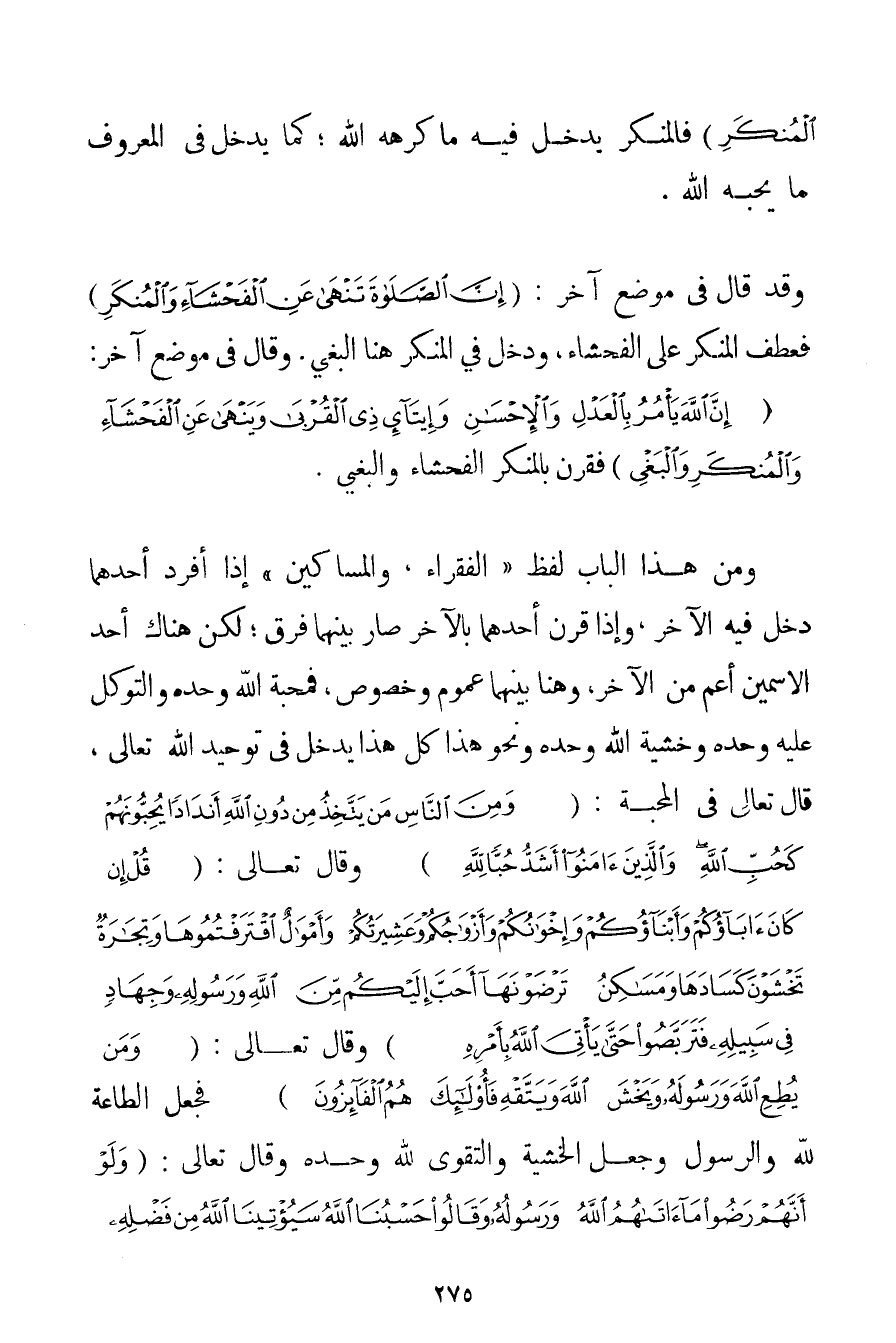 ٱلْمُنكَرِ ) فالمنكر يدخل فيه ما كرهه الله ؛ كما يدخل فى المعروف
ما يحبه الله .
وقد قال فى موضع آخر : ( إِنَّ ٱلصَّلَوٰةَ تَنْهَىٰ عَنِ ٱلْفَحْشَآءِ وَٱلْمُنكَرِ )
فعطف المنكر على الفحشاء ، ودخل في المنكر هنا البغي . وقال فى موضع آخر :
( إِنَّ ٱللَّهَ يَأْمُرُ بِٱلْعَدْلِ وَٱلْإِحْسَٰنِ وَإِيتَآيِٕ ذِى ٱلْقُرْبَىٰ وَيَنْهَىٰ عَنِ ٱلْفَحْشَآءِ
وَٱلْمُنكَرِ وَٱلْبَغْىِ ) فقرن بالمنكر الفحشاء والبغي .
ومن هذا الباب لفظ « الفقراء ، والمساكين » إذا أفرد أحدهما
دخل فيه الآخر ، وإذا قرن أحدهما بالآخر صار بينهما فرق ؛ لكن هناك أحد
الاسمين أعم من الآخر ، وهنا بينهما عموم وخصوص ، فمحبة الله وحده والتوكل
عليه وحده وخشية الله وحده ونحو هذا كل هذا يدخل فى توحيد الله تعالى ،
قال تعالى فى المحبة : ( وَمِنَ ٱلنَّاسِ مَن يَتَّخِذُ مِن دُونِ ٱللَّهِ أَندَادًا يُحِبُّونَهُمْ
كَحُبِّ ٱللَّهِ ۖ وَٱلَّذِينَ ءَامَنُوٓا۟ أَشَدُّ حُبًّا لِّلَّهِ ) وقال تعالى : ( قُلْ إِن
كَانَ ءَابَآؤُكُمْ وَأَبْنَآؤُكُمْ وَإِخْوَٰنُكُمْ وَأَزْوَٰجُكُمْ وَعَشِيرَتُكُمْ وَأَمْوَٰلٌ ٱقْتَرَفْتُمُوهَا وَتِجَٰرَةٌ
تَخْشَوْنَ كَسَادَهَا وَمَسَٰكِنُ تَرْضَوْنَهَآ أَحَبَّ إِلَيْكُم مِّنَ ٱللَّهِ وَرَسُولِهِۦ وَجِهَادٍ
فِى سَبِيلِهِۦ فَتَرَبَّصُوا۟ حَتَّىٰ يَأْتِىَ ٱللَّهُ بِأَمْرِهِۦ ) وقال تعالى : ( وَمَن
يُطِعِ ٱللَّهَ وَرَسُولَهُۥ وَيَخْشَ ٱللَّهَ وَيَتَّقْهِ فَأُو۟لَٰٓئِكَ هُمُ ٱلْفَآئِزُونَ ) فجعل الطاعة
لله والرسول وجعل الخشية والتقوى لله وحده وقال تعالى : ( وَلَوْ
أَنَّهُمْ رَضُوا۟ مَآ ءَاتَىٰهُمُ ٱللَّهُ وَرَسُولُهُۥ وَقَالُوا۟ حَسْبُنَا ٱللَّهُ سَيُؤْتِينَا ٱللَّهُ مِن فَضْلِهِۦ
٢٧٥